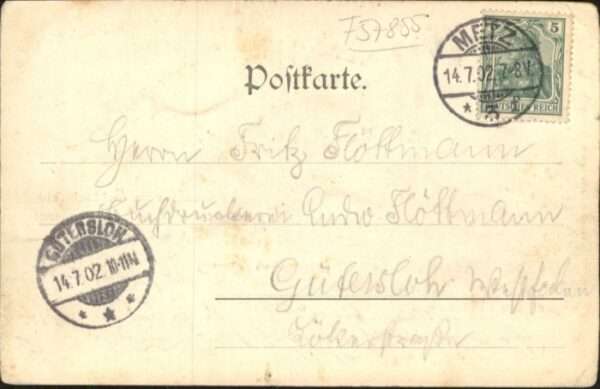 757855
METZ
14.7.02. 7-8V.
5
DEUTSCHES REICH
Postkarte.
Herrn Fritz Flöttmann
Buchdruckerei Ludw Flöttmann
GÜTERSLOH
14.7.02. 10-11N
Gütersloh Westfalen